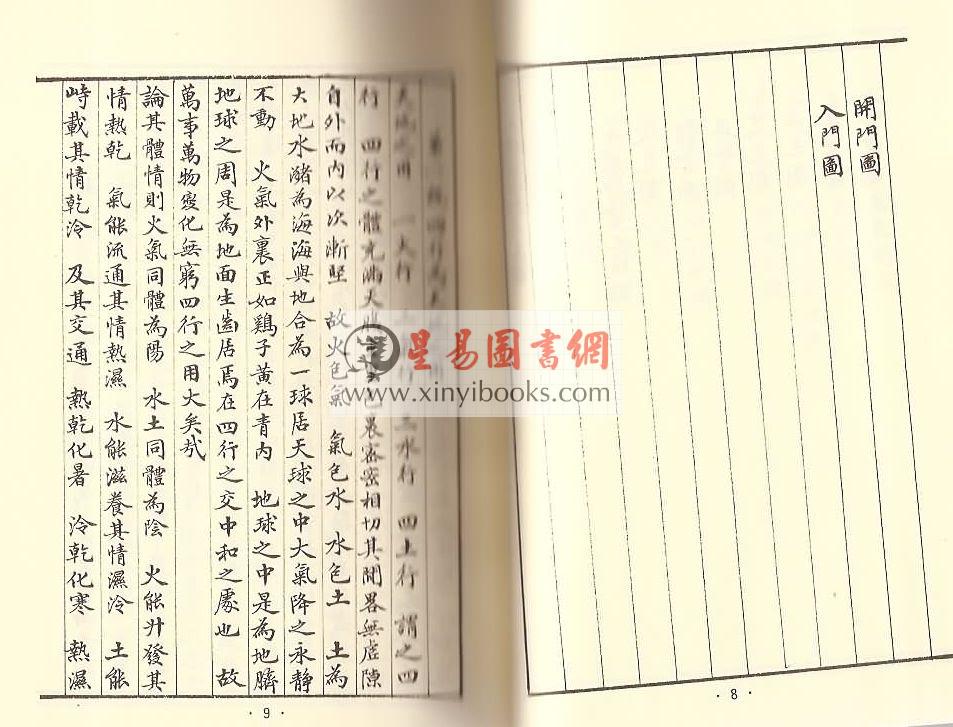 開門圖
入門圖
· 8 ·
用 一火行 三水行 四土行 謂之四
行 四行之體充滿天 包裹密密相切其間畧無虛隙
自外而內以次漸堅 故火包氣 氣包水 水包土 土為
大地水瀦為海海與地合為一球居天球之中大氣降之永靜
不動 火氣外裏正如鷄子黃在青內 地球之中是為地臍
地球之周是為地面生齒居焉在四行之交中和之處也 故
萬事萬物變化無窮四行之用大矣哉
論其體情則火氣同體為陽 水土同體為陰 火能升發其
情熱乾 氣能流通其情熱濕 水能滋養其情濕冷 土能
峙載其情乾冷 及其交通 熱乾化暑 冷乾化寒 熱濕
· 9 ·
星易圖書網
www.xinyibooks.com